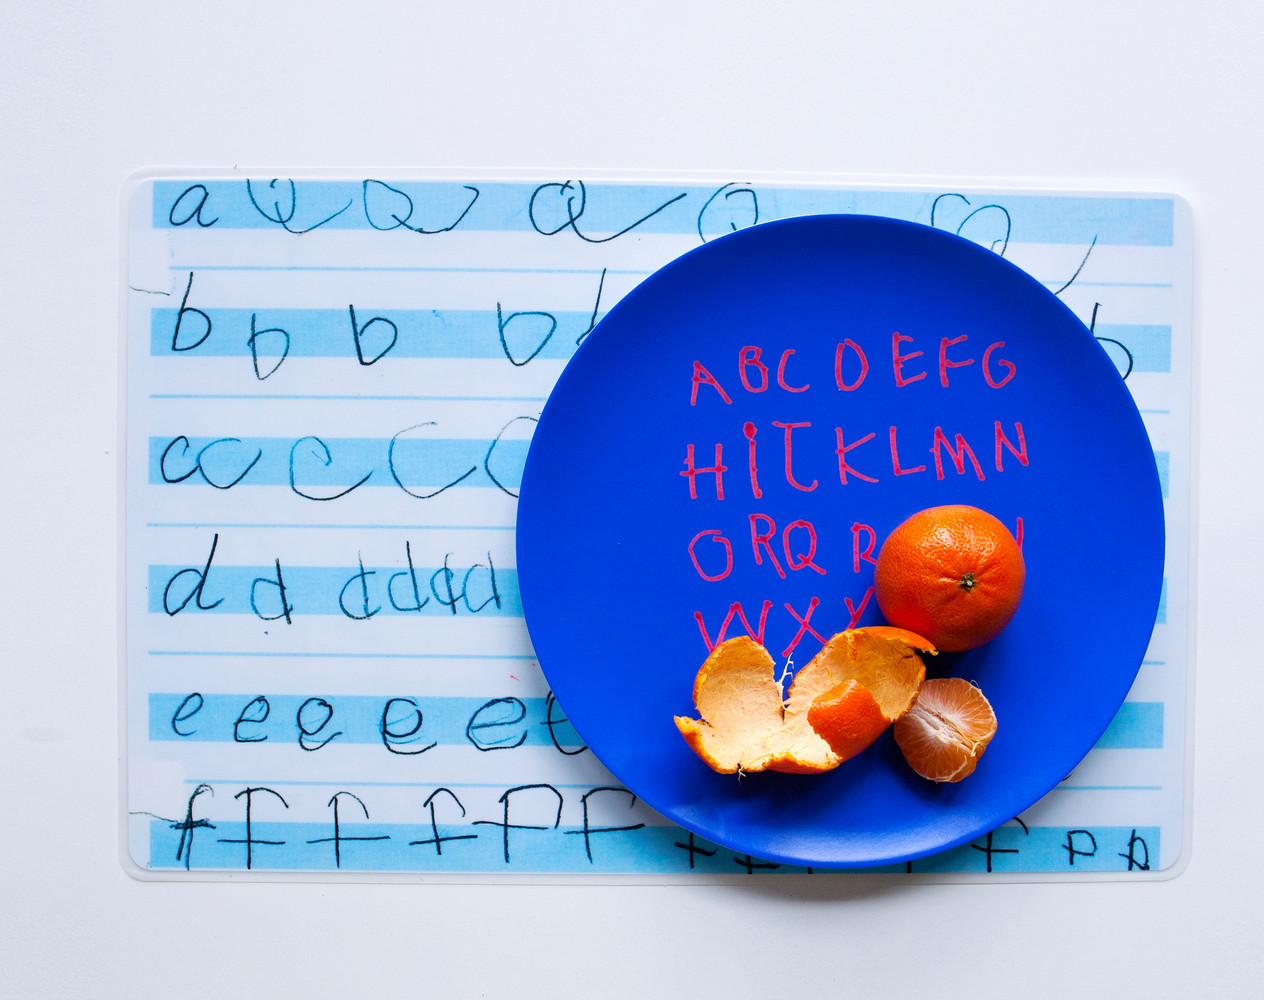 a a a a a a
b b b b b b
c c c c c
d d d d d d
e e e e e e
f f f f f f f
ABCDEFG
HIJKLMN
ORQR
WXY